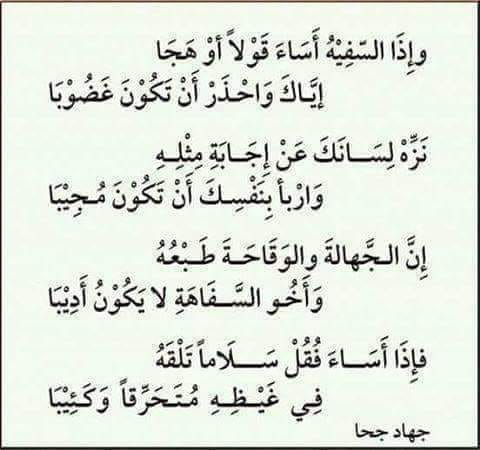 وإِذَا السّفِيْهُ أَسَاءَ قَوْلاً أوْ هَجَا
إيَّاكَ وَاحْـذَرْ أَنْ تَكُوْنَ غَضُوْبَا
نَزِّهْ لِسَــانَكَ عَنْ إِجَــابَةِ مِثْلِــهِ
وَارْبأْ بِنَفْسِـكَ أَنْ تَكُوْنَ مُـجِيْبَا
إِنَّ الـجَّهالةَ والوَقَاحَــةَ طَبْـعُهُ
وَأَخُـو السَّــفَاهَةِ لا يَكُوْنُ أَدِيْبَا
فإِذَا أَسَــاءَ فُقُلْ سَــلَاماً تَلْقَهُ
فِي غَيْـظِــهِ مُتَحَرِّقاً وَكَـئِيْبَا
جهاد جحا